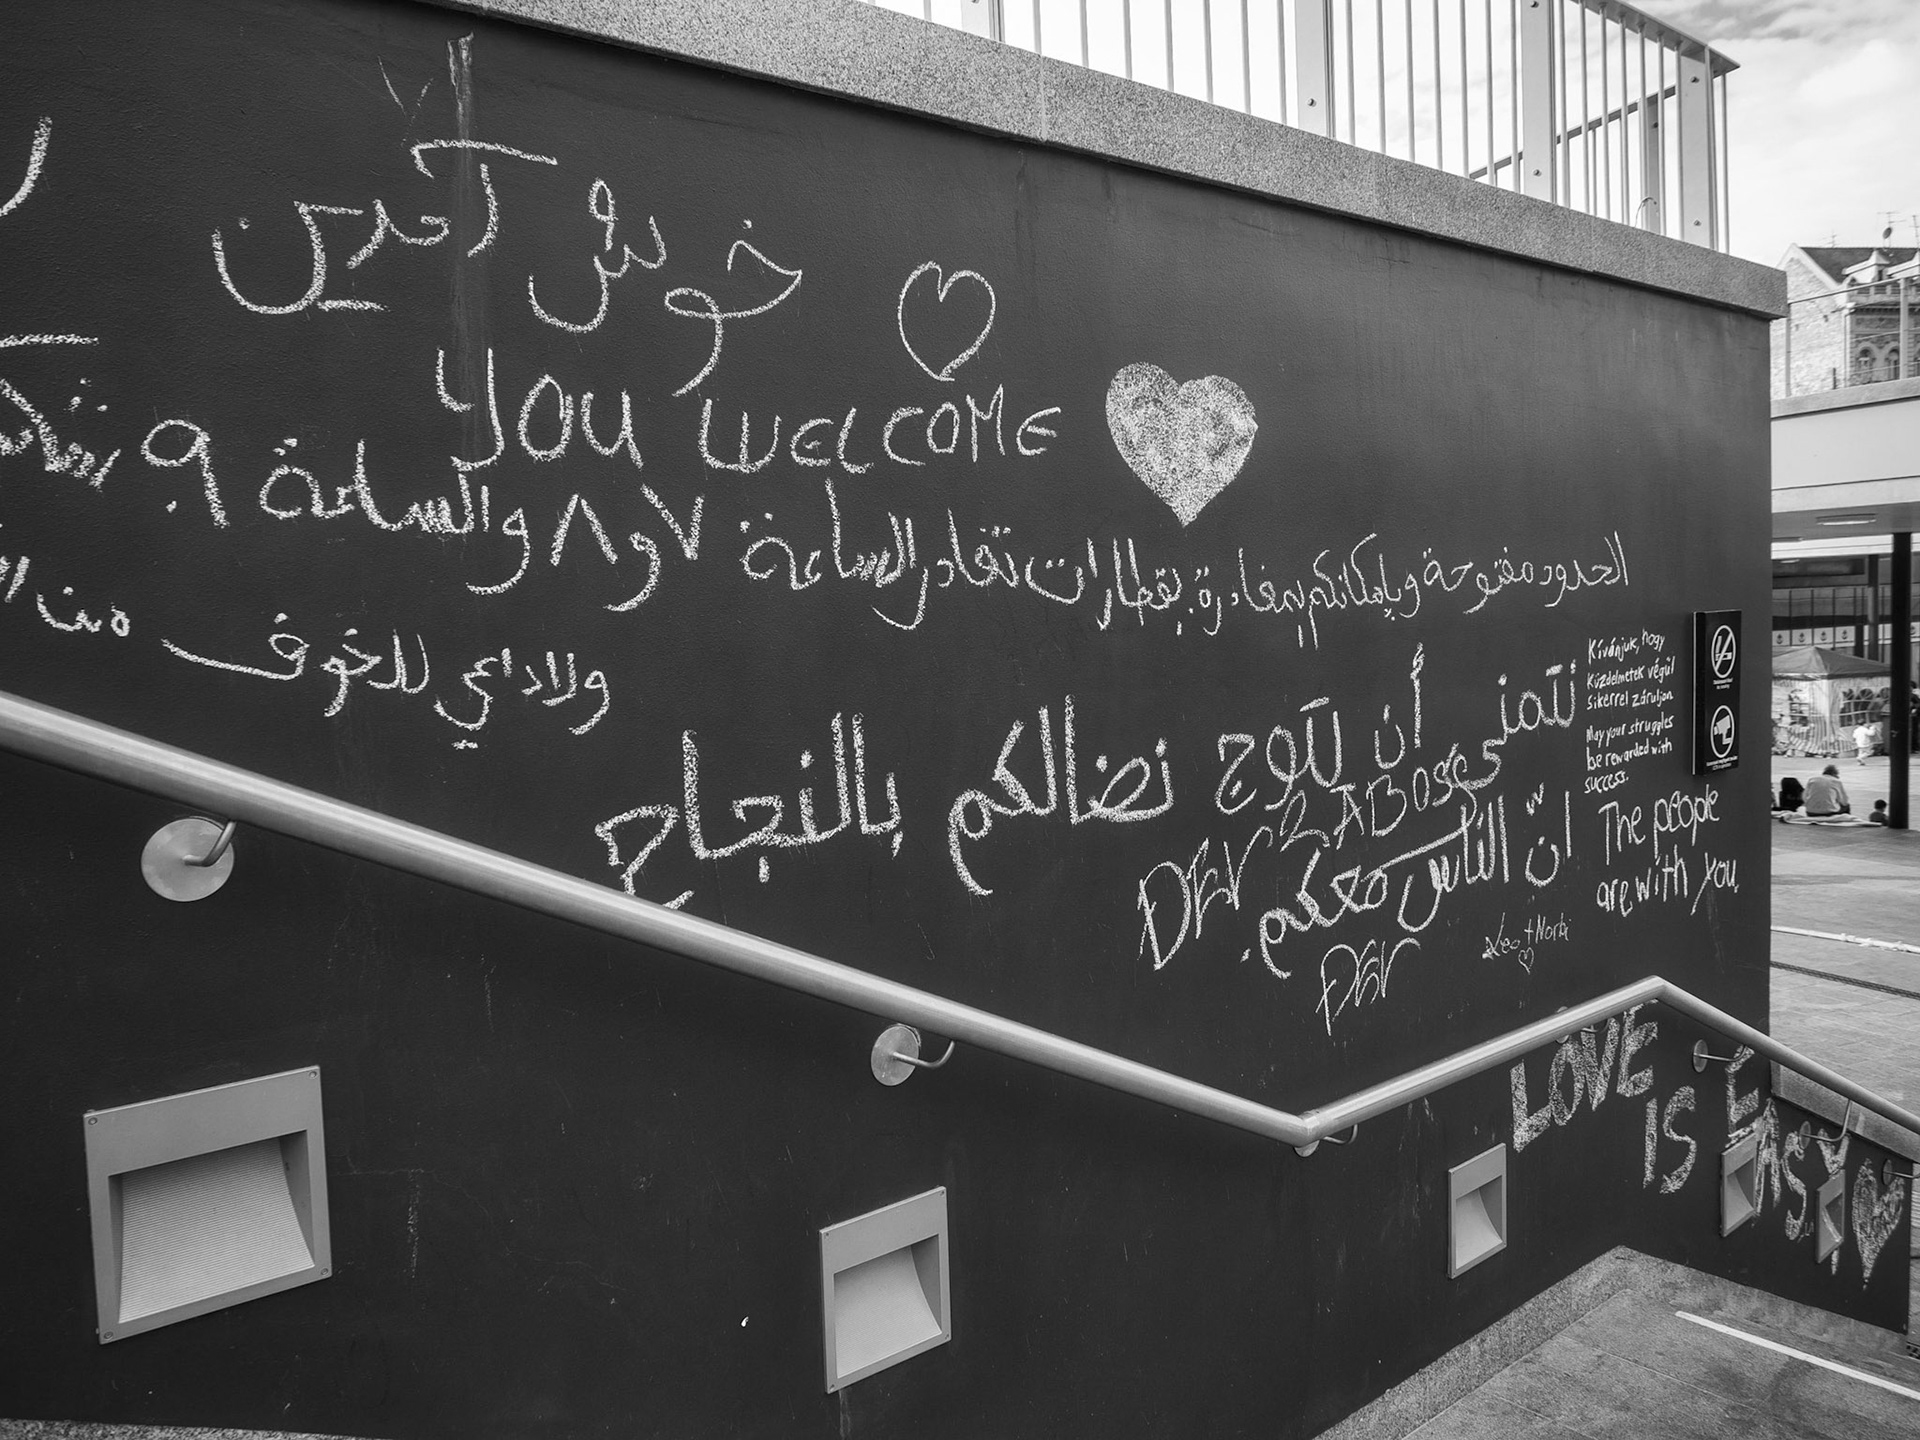 خوش آمدین
YOU WELCOME
الحدود مفتوحة وبإمكانكم مغادرة بقطارات تغادر الساعة ٧ و ٨ والساعة ٩
ولا داعي للخوف من
نتمنى أن تتوج نضالكم بالنجاح
Kívánjuk, hogy
küzdelmetek végül
sikerrel záruljon
May your struggles
be rewarded with
success.
انّ الناس معكم.
The people
are with you.
Leo + Norbi
LOVE
IS EASY